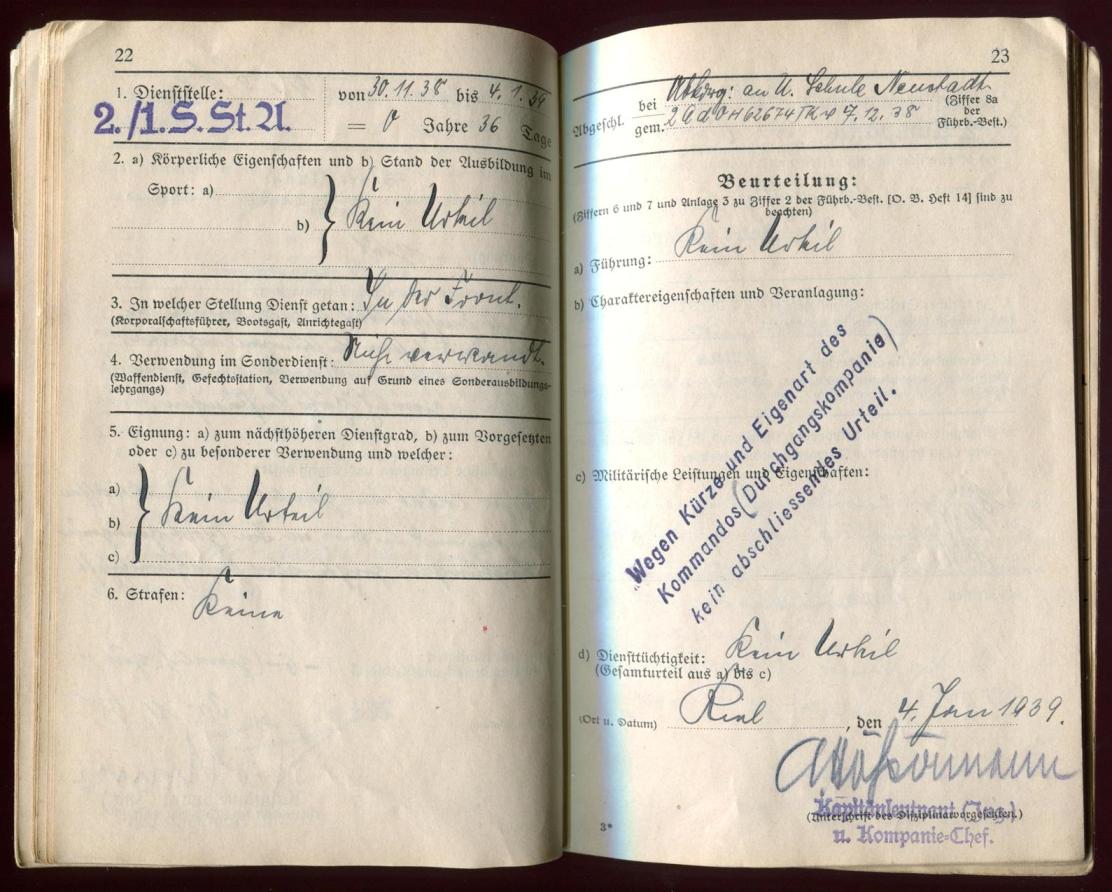 22
1. Dienststelle:
2./1.S.St.A.
von 30.11.38 bis 4.1.39
= 0 Jahre 36 Tage
2. a) Körperliche Eigenschaften und b) Stand der Ausbildung im
Sport: a)
b)
Kein Urteil
3. In welcher Stellung Dienst getan: In der Front.
(Korporalschaftsführer, Bootsgast, Anrichtegast)
4. Verwendung im Sonderdienst:
(Waffendienst, Gefechtsstation, Verwendung auf Grund eines Sonderausbildungs-
lehrgangs)
5. Eignung: a) zum nächsthöheren Dienstgrad, b) zum Vorgesetzten
oder c) zu besonderer Verwendung und welcher:
a)
b) Kein Urteil
c)
6. Strafen: Keine
23
Abgeschl. bei an U. Schule Neustadt
gem. 7.12.38
(Ziffer 8a
der
Führb.-Best.)
Beurteilung:
(Ziffern 6 und 7 und Anlage 3 zu Ziffer 2 der Führb.-Best. [O. B. Heft 14] sind zu
beachten)
a) Führung: Kein Urteil
b) Charaktereigenschaften und Veranlagung:
c) Militärische Leistungen und Eigenschaften:
Wegen Kürze und Eigenart des
Kommandos (Durchgangskompanie)
kein abschliessendes Urteil.
d) Diensttüchtigkeit: Kein Urteil
(Gesamturteil aus a) bis c)
(Ort u. Datum) Kiel, den 4. Jan 1939.
Kapitänleutnant (Ing.)
(Unterschrift des Disziplinarvorgesetzten.)
u. Kompanie-Chef.
3*